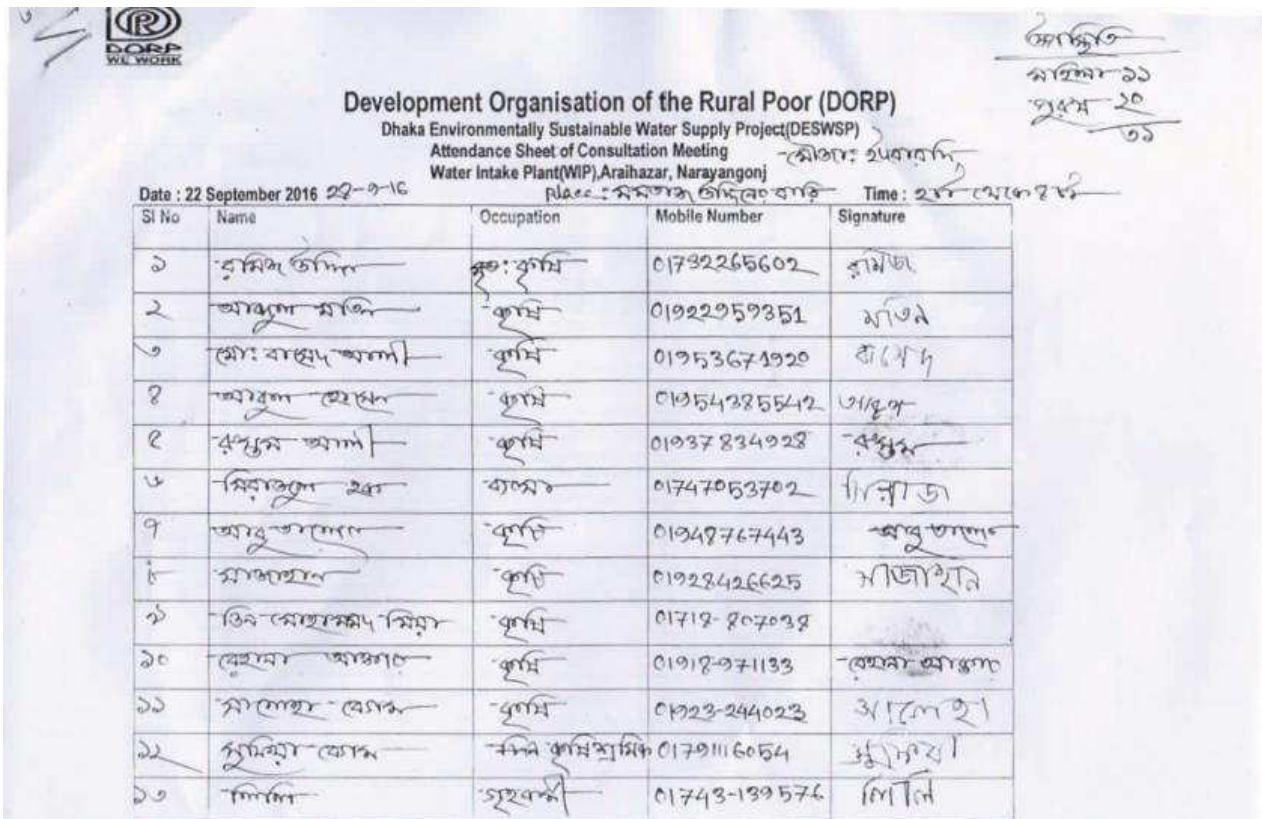 DORP
WE WORK
উপস্থিতি
মহিলা ১১
পুরুষ ২০
৩১
Development Organisation of the Rural Poor (DORP)
Dhaka Environmentally Sustainable Water Supply Project(DESWSP)
Attendance Sheet of Consultation Meeting
মৌজা:
Water Intake Plant(WIP),Araihazar, Narayangonj
Date : 22 September 2016 22-9-16 Place : মমতাজ উদ্দিনের বাড়ি Time :
Sl No Name Occupation Mobile Number Signature
১ রমিজ উদ্দিন কৃষি 01732265602 রমিজ
২ আব্দুল মতিন কৃষি 01922959351 মতিন
৩ মো: বাছেদ আলী কৃষি 01953671920 বাছেদ
৪ আবুল হোসেন কৃষি 01954385542 আবুল
৫ রুস্তম আলী কৃষি 01937834928 রুস্তম
৬ সিরাজুল হক 01747053702 সিরাজ
৭ আবু তালেব কৃষি 01948767443 আবু তালেব
৮ সাজাহান কৃষি 01928426625 সাজাহান
৯ দ্বিন মোহাম্মদ মিয়া কৃষি 01718-807038
১০ রেহানা আক্তার কৃষি 01918-971133 রেহানা আক্তার
১১ সালেহা বেগম কৃষি 01923-244023 সালেহা
১২ সুমিয়া বেগম কৃষি শ্রমিক 01791116054
১৩ লিলি গৃহকর্মী 01743-139576 লিলি